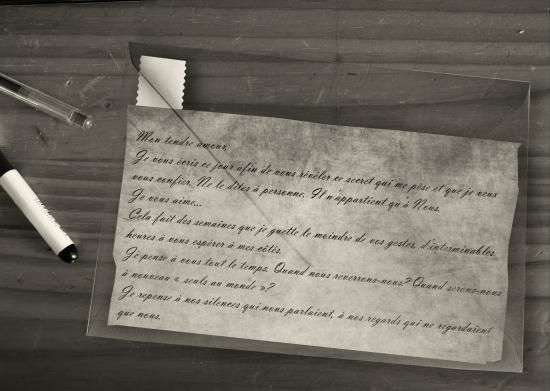 Mon tendre amour,
Je vous écris ce jour afin de vous révéler ce secret qui me pèse et que je veux
vous confier. Ne le dites à personne. Il n'appartient qu'à Nous.
Je vous aime...
Cela fait des semaines que je guette le moindre de vos gestes, d'interminables
heures à vous espérer à mes côtés.
Je pense à vous tout le temps. Quand nous reverrons-nous? Quand serons-nous
à nouveau « seuls au monde »?
Je repense à nos silences qui nous parlaient, à nos regards qui ne regardaient
que nous.